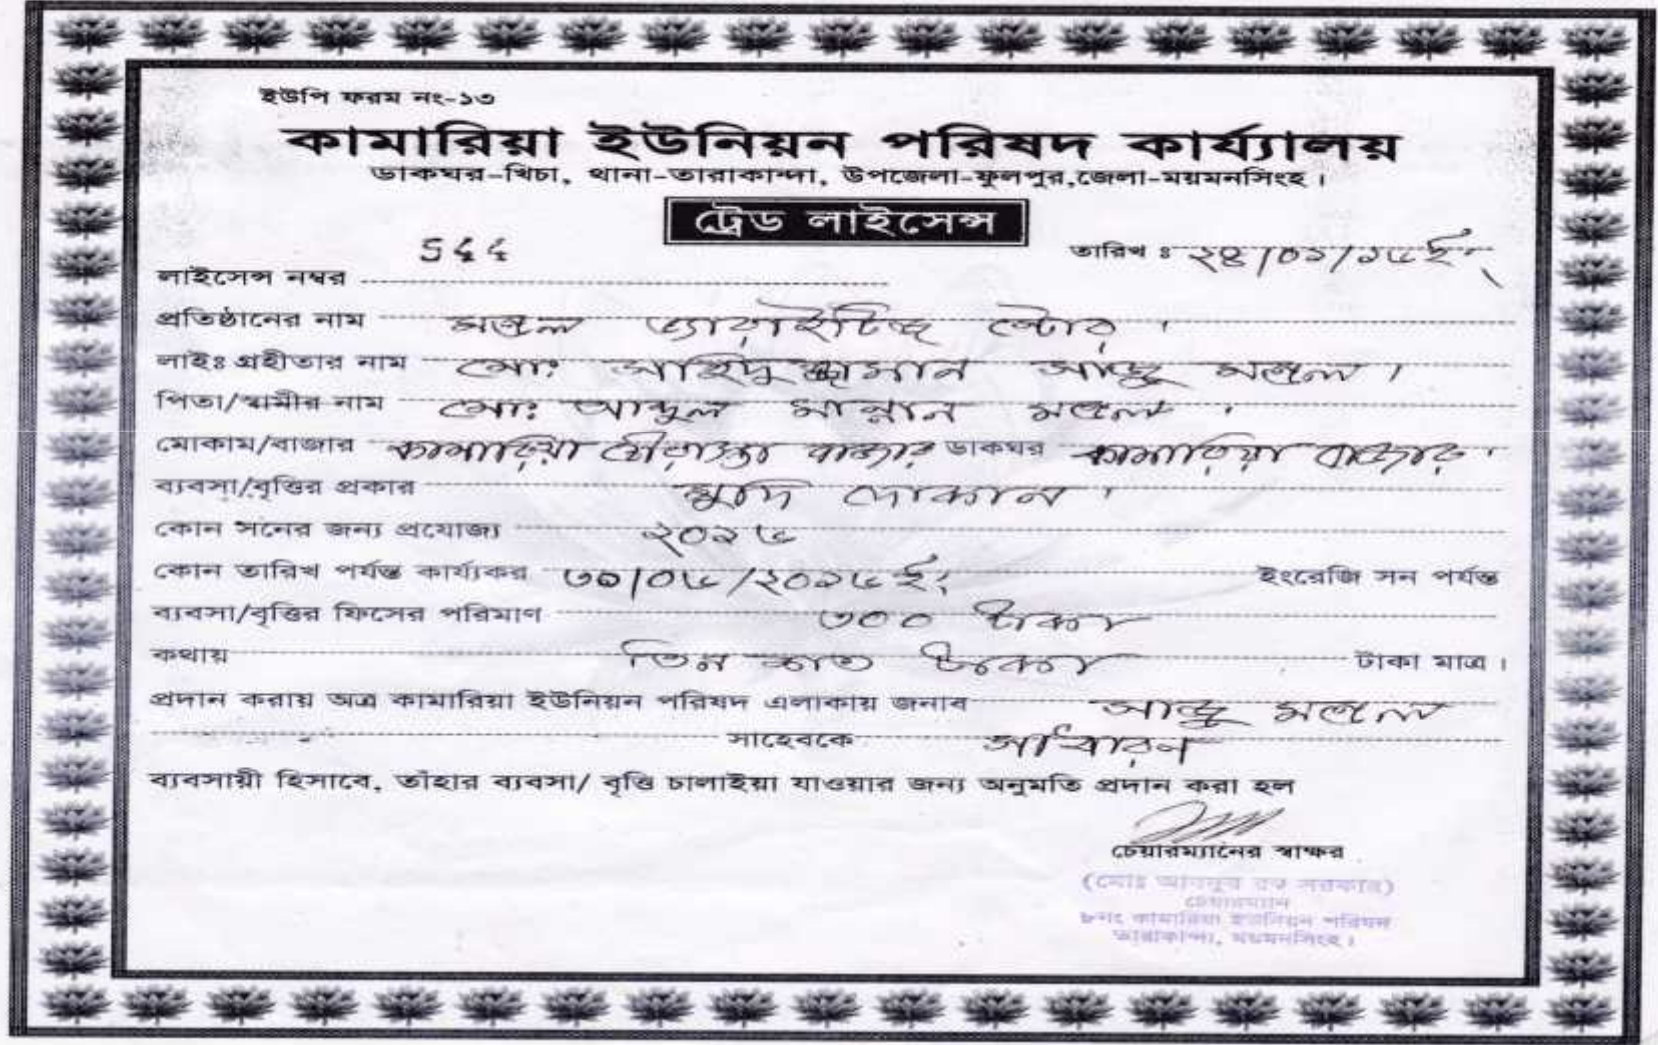 ইউপি ফরম নং-১৩
কামারিয়া ইউনিয়ন পরিষদ কার্য্যালয়
ডাকঘর-খিচা, থানা-তারাকান্দা, উপজেলা-ফুলপুর,জেলা-ময়মনসিংহ।
ট্রেড লাইসেন্স
তারিখ ঃ ২৪/০১/১৬ইং
লাইসেন্স নম্বর
প্রতিষ্ঠানের নাম মন্ডল ভ্যারাইটিজ ষ্টোর।
লাইঃ গ্রহীতার নাম মোঃ সাহিদুজ্জামান সাজু মন্ডল।
পিতা/স্বামীর নাম মোঃ আব্দুল মান্নান মন্ডল।
মোকাম/বাজার কামারিয়া চৌরাস্তা বাজার ডাকঘর কামারিয়া বাজার।
ব্যবসা/বৃত্তির প্রকার মুদি দোকান।
কোন সনের জন্য প্রযোজ্য ২০১৬
কোন তারিখ পর্যন্ত কার্য্যকর ৩০/০৬/২০১৬ইং ইংরেজি সন পর্যন্ত
ব্যবসা/বৃত্তির ফিসের পরিমাণ ৩০০ টাকা
কথায় তিন শত টাকা টাকা মাত্র।
প্রদান করায় অত্র কামারিয়া ইউনিয়ন পরিষদ এলাকায় জনাব সাজু মন্ডল
সাহেবকে সাধারণ
ব্যবসায়ী হিসাবে, তাঁহার ব্যবসা/ বৃত্তি চালাইয়া যাওয়ার জন্য অনুমতি প্রদান করা হল
চেয়ারম্যানের স্বাক্ষর
(মোঃ সরকার)
চেয়ারম্যান
৮নং কামারিয়া ইউনিয়ন পরিষদ
তারাকান্দা, ময়মনসিংহ।